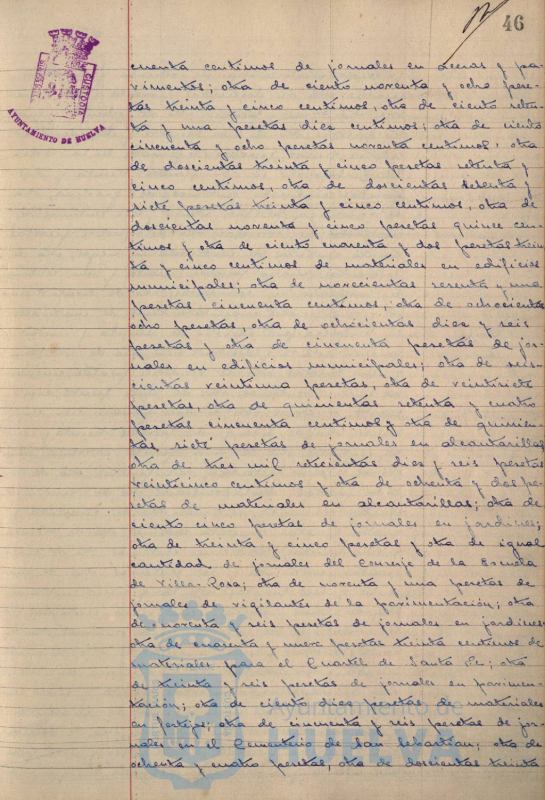 46
AYUNTAMIENTO DE HUELVA
cuenta centimos de jornales en aceras y pa-
vimentos; otra de ciento noventa y ocho pese-
tas treinta y cinco centimos, otra de ciento seten-
ta y una pesetas diez centimos; otra de ciento
cincuenta y ocho pesetas noventa centimos, otra
de doscientas treinta y cinco pesetas setenta y
cinco centimos, otra de doscientas setenta y
siete pesetas treinta y cinco centimos, otra de
doscientas noventa y cinco pesetas quince cen-
timos y otra de ciento cuarenta y dos pesetas trein
ta y cinco centimos de materiales en edificios
municipales; otra de novecientas sesenta y una
pesetas cincuenta centimos, otra de ochocientas
ocho pesetas, otra de ochocientas diez y seis
pesetas y otra de cincuenta pesetas de jor-
nales en edificios municipales; otra de seis-
cientas veintiuna pesetas, otra de veintisiete
pesetas, otra de quinientas setenta y cuatro
pesetas cincuenta centimos y otra de quinien-
tas siete pesetas de jornales en alcantarillas
otra de tres mil setecientas diez y seis pesetas
veinticinco centimos y otra de ochenta y dos pe-
setas de materiales en alcantarillas; otra de
ciento cinco pesetas de jornales en jardines;
otra de treinta y cinco pesetas y otra de igual
cantidad de jornales del Conserje de la Escuela
de Villa-Rosa; otra de noventa y una pesetas de
jornales de vigilantes de la pavimentación; otra
de noventa y seis pesetas de jornales en jardines
otra de cuarenta y nueve pesetas treinta centimos de
materiales para el Cuartel de Santa Fe; otra
de treinta y seis pesetas de jornales en pavimen-
tación; otra de ciento diez pesetas de materiales
en festejos; otra de cincuenta y seis pesetas de jor-
nales en el Cementerio de San Sebastian; otra de
ochenta y cuatro pesetas, otra de doscientas treinta
Ayuntamiento de
HUELVA